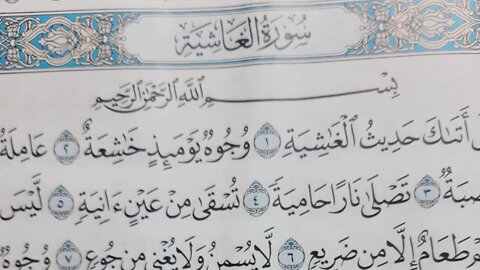 سُورَةُ الغَاشِيَةِ
بِسْمِ ٱللَّهِ ٱلرَّحْمَٰنِ ٱلرَّحِيمِ
أَتَىٰكَ حَدِيثُ ٱلْغَٰشِيَةِ ١ وُجُوهٌ يَوْمَئِذٍ خَٰشِعَةٌ ٢ عَامِلَةٌ
٣ تَصْلَىٰ نَارًا حَامِيَةً ٤ تُسْقَىٰ مِنْ عَيْنٍ ءَانِيَةٍ ٥ لَّيْسَ
طَعَامٌ إِلَّا مِن ضَرِيعٍ ٦ لَّا يُسْمِنُ وَلَا يُغْنِي مِن جُوعٍ ٧ وُجُوهٌ